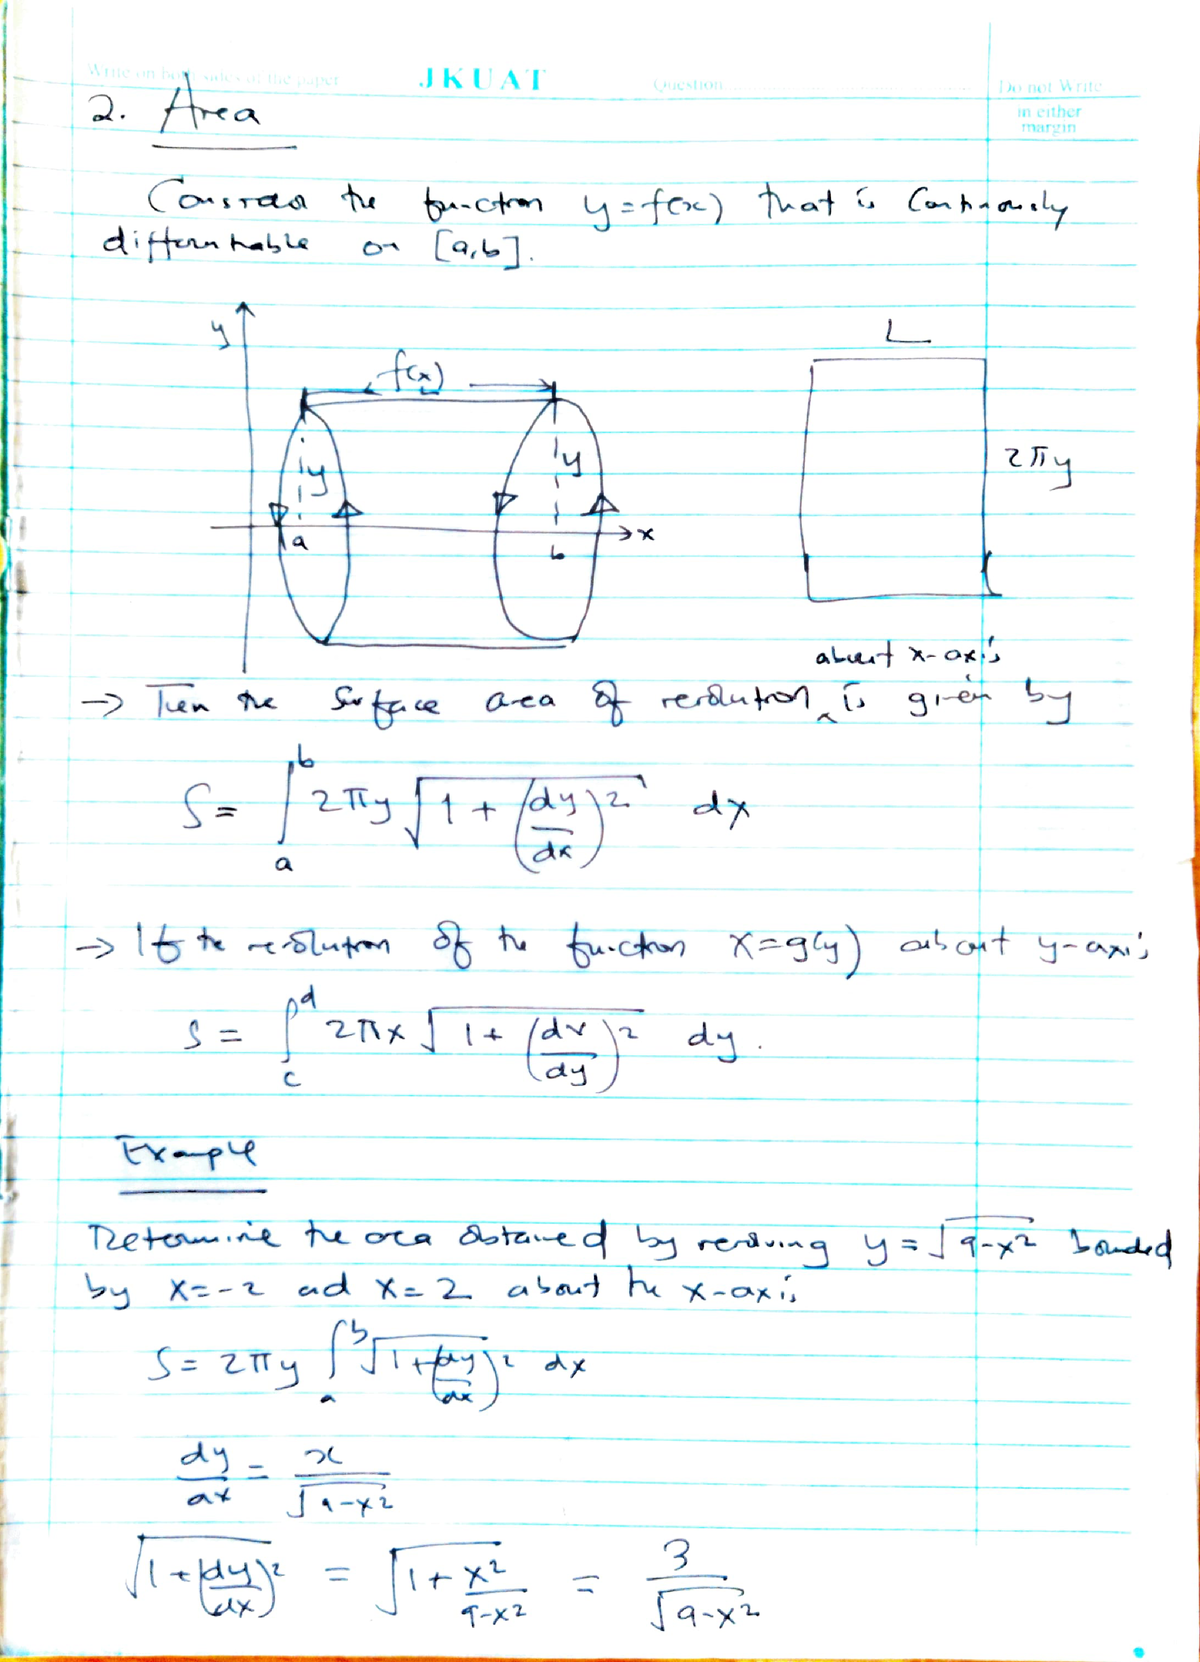 Write on both sides of the paper JKUAT Question Do not Write
in either
margin
2. Area
Consider the function y = f(x) that is Continuously
differentiable on [a,b].
y f(x) L
y y 2πy
a b x
about x-axis
→ Then the Surface area of revolution ‸ is given by
S = ∫_a^b 2πy √(1 + (dy/dx)²) dx
→ If the revolution of the function x = g(y) about y-axis
S = ∫_c^d 2πx √(1 + (dx/dy)²) dy.
Example
Determine the area obtained by revolving y = √(9-x²) bounded
by x = -2 and x = 2 about the x-axis
S = 2πy ∫_a^b √(1 + (dy/dx)²) dx
dy/dx = x/√(9-x²)
√(1 + (dy/dx)²) = √(1 + x²/(9-x²)) = 3/√(9-x²)